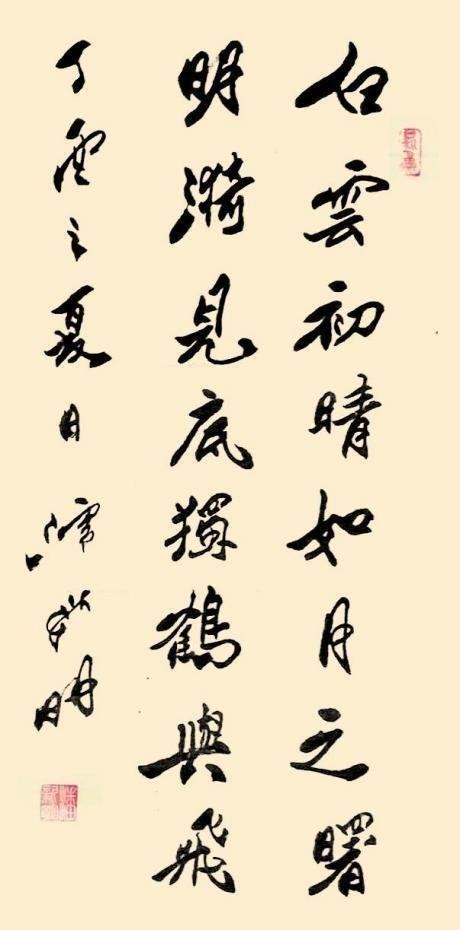 白雲初晴如月之曙
明漪見底獨鶴與飛
丁酉之夏日